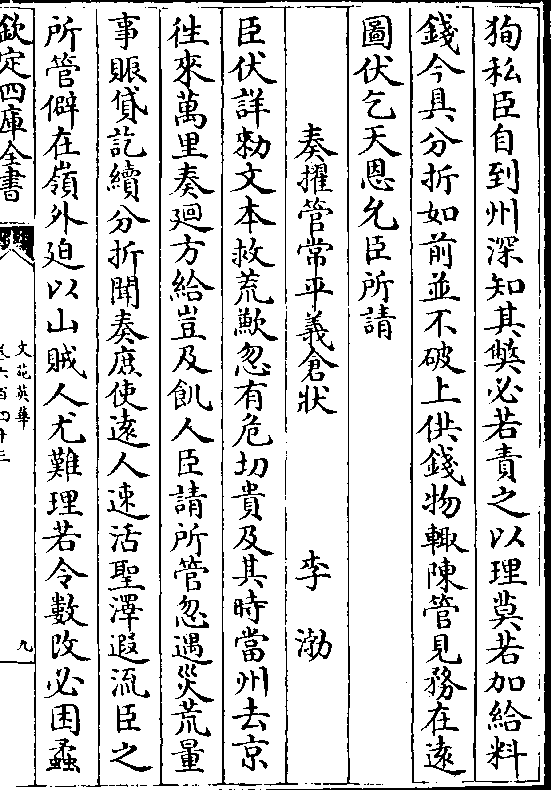 狥私臣自到州深知其獘必若責之以理莫若加給料
錢今具分折如前並不破上供錢物輙陳管見務在遠
圖伏乞天恩允臣所請
奏擢管常平義倉狀　李渤
臣伏詳勅文本救荒歉忽有危切貴及其時當州去京
往來萬里奏廻方給豈及飢人臣請所管忽遇災荒量
事賑貸訖續分折聞奏庶使遠人速活聖澤遐流臣之
所管僻在嶺外廹以山賊人尤難理若令數改必困蟊
欽定四庫全書
文苑英華
九